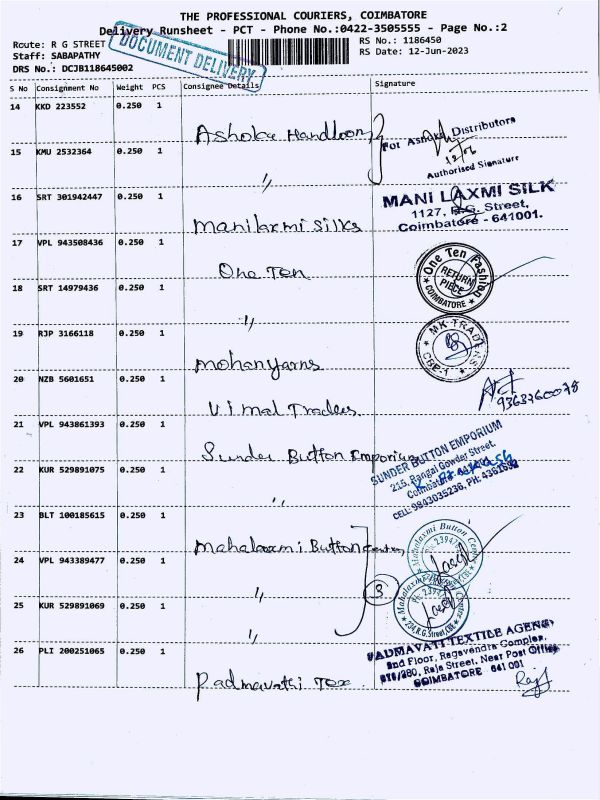 THE PROFESSIONAL COURIERS, COIMBATORE
Delivery Runsheet - PCT - Phone No.:0422-3505555 - Page No.:2
Route: R G STREET
Staff: SABAPATHY
DRS No.: DCJB118645002
DOCUMENT DELIVERY
RS No.: 1186450
RS Date: 12-Jun-2023
S No Consignment No Weight PCS Consignee Details Signature
14 KKD 223552 0.250 1
Ashoka Handloom
For Ashoka Distributors
12/06
Authorised Signature
15 KMU 2532364 0.250 1
"
16 SRT 301942447 0.250 1
Manilaxmi Silks
MANI LAXMI SILK
1127, R.G. Street,
Coimbatore - 641001.
17 VPL 943508436 0.250 1
One Ten
One Ten Fashion
RETURN
PIECE
COIMBATORE
18 SRT 14979436 0.250 1
"
19 RJP 3166118 0.250 1
Mohanyarns
MK TRADERS
CBE-1
20 NZB 5601651 0.250 1
Vimal Traders
9363760078
21 VPL 943861393 0.250 1
Sunder Button Emporium
SUNDER BUTTON EMPORIUM
215, Rangai Gowder Street,
Coimbatore
CELL: 9843035236, PH:
22 KUR 529891075 0.250 1
"
23 BLT 100185615 0.250 1
Mahalaxmi Button Centre
Mahalaxmi Button Centre
24 VPL 943389477 0.250 1
"
3
25 KUR 529891069 0.250 1
"
Mahalaxmi Button Centre
234, R.G. Street, CBE
26 PLI 200251065 0.250 1
Padmavathi Tex
PADMAVATI TEXTILE AGENCY
2nd Floor, Ragavendra Complex,
Raja Street, Near Post Office
COIMBATORE 641 001